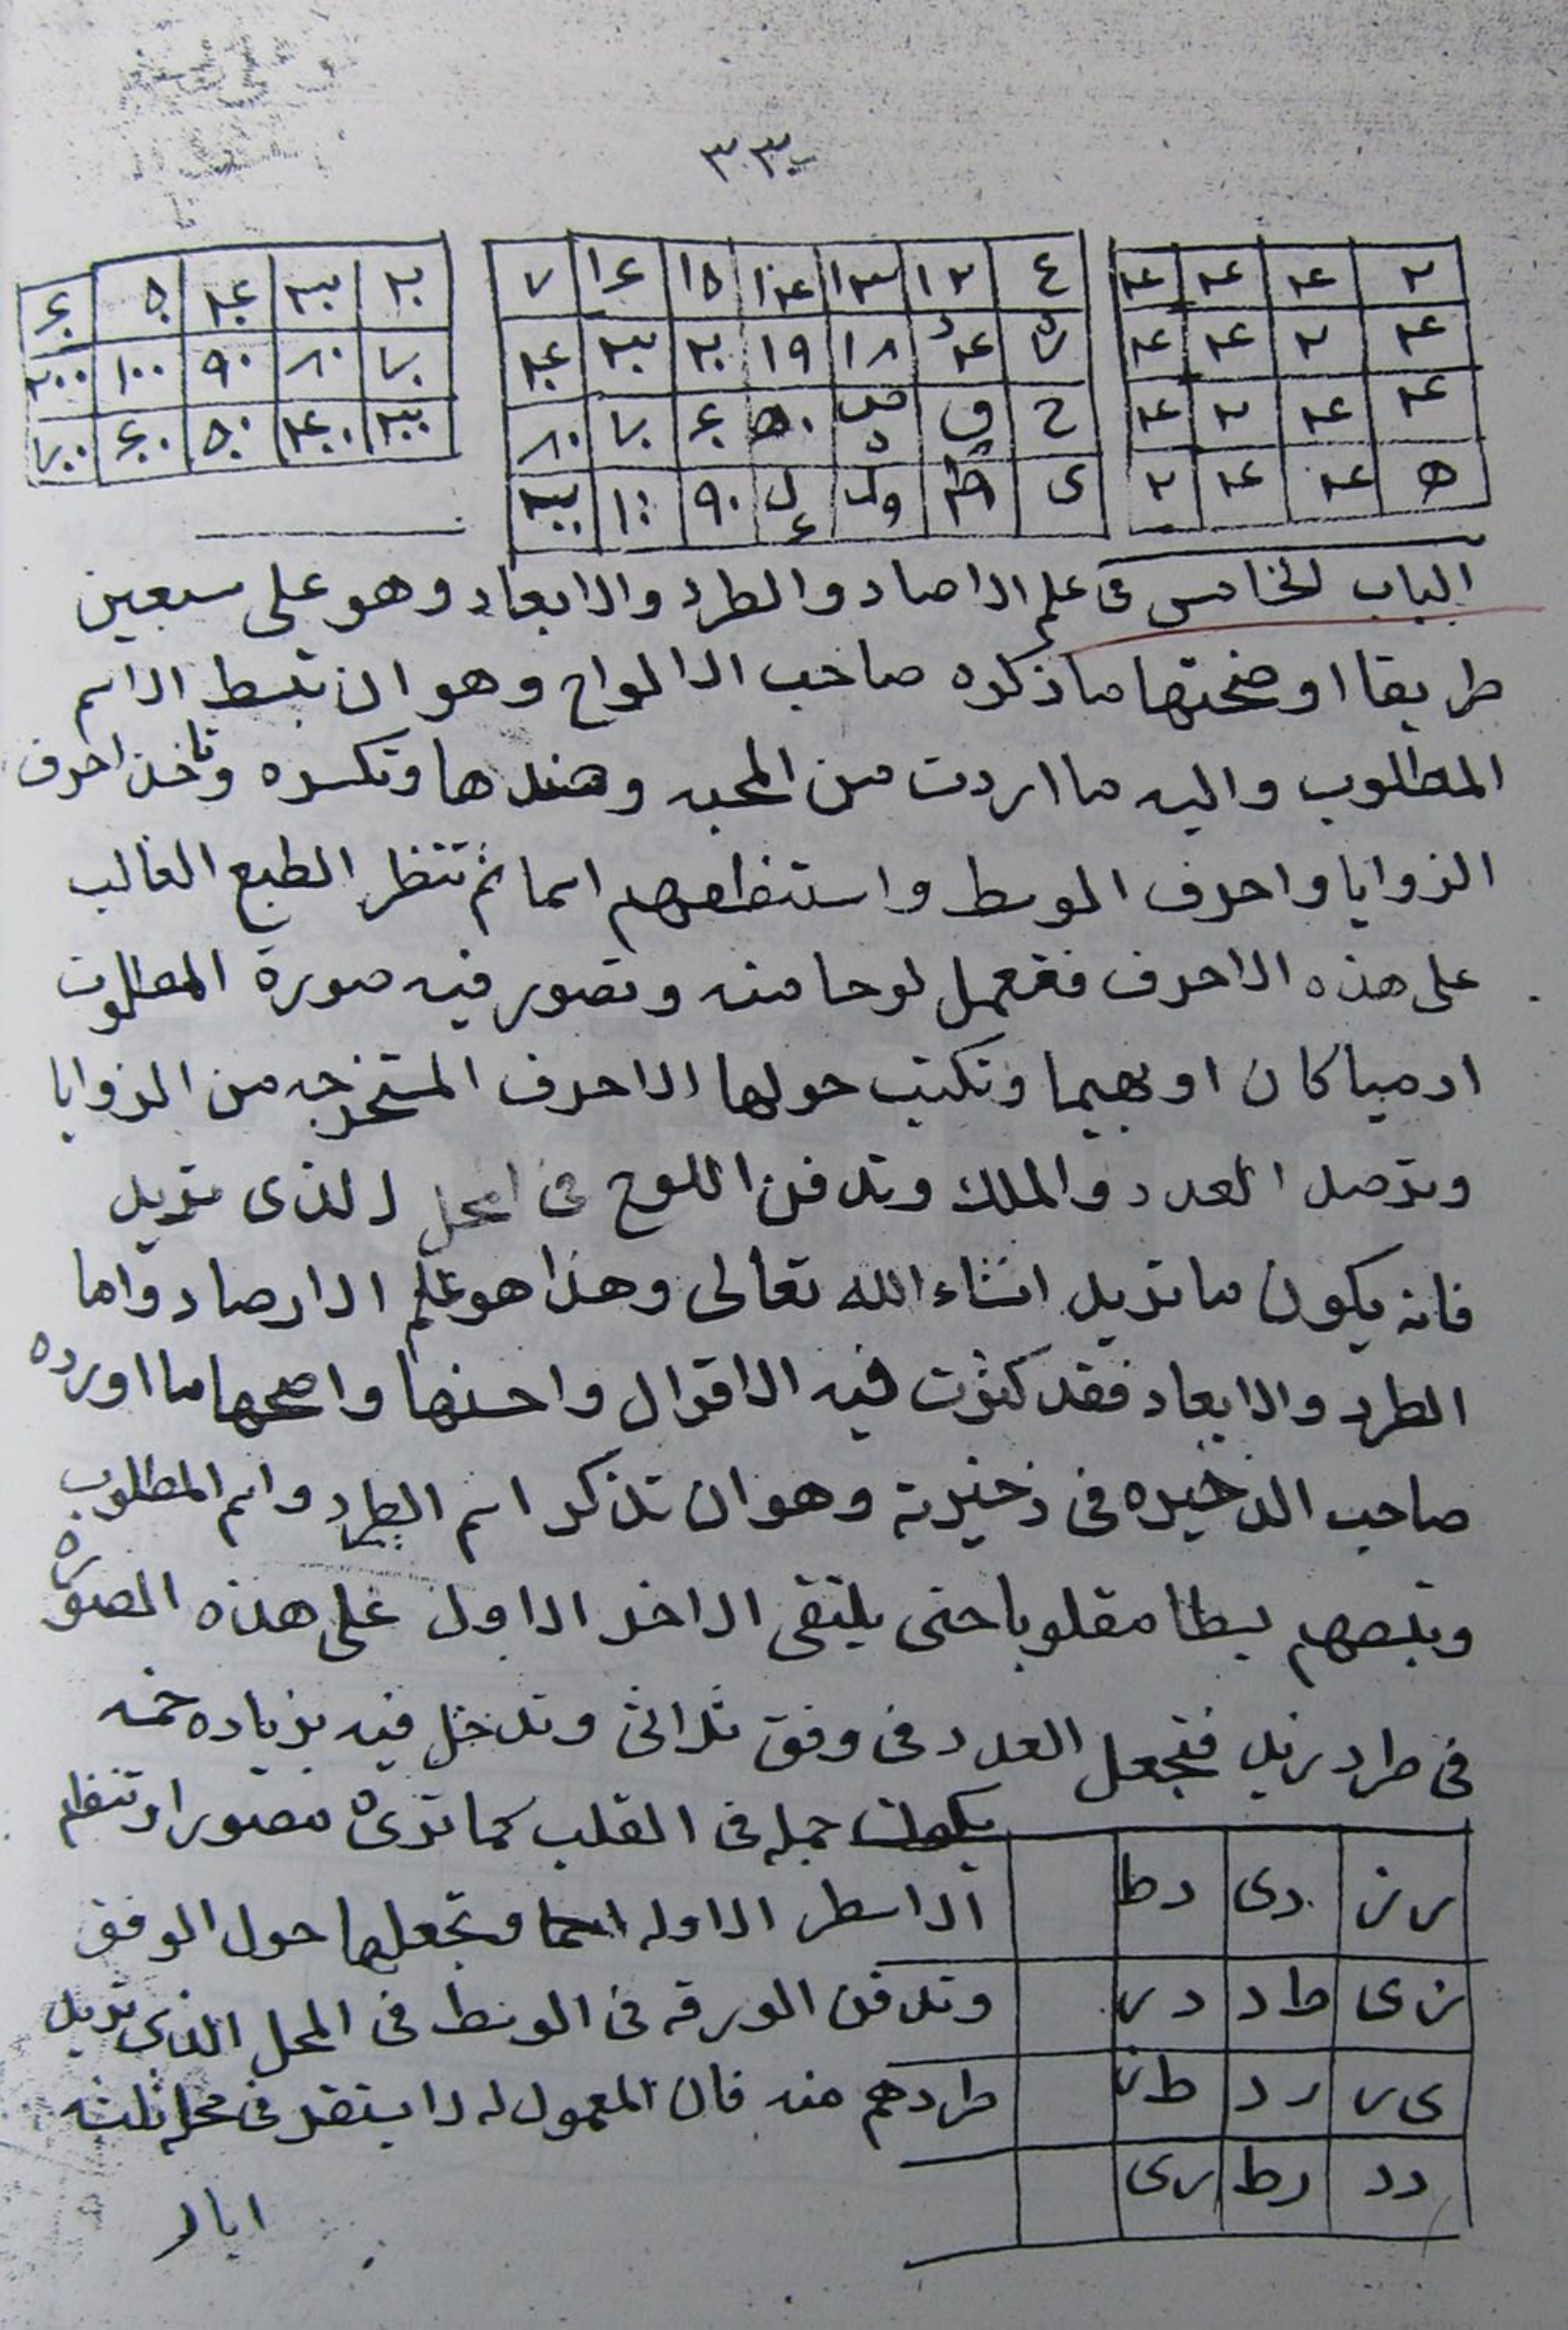 ٣٣
٢ ٤ ٤ ٤
٤ ٢ ٤ ٤
٤ ٤ ٢ ٤
ه ٤ ٤ ٢
٤ ١٢ ١٣ ١٤ ١٥ ١٦ ٧
١٨ ١٩ ٢٠ ٣٠ ٤٠
ح ٥٠ ٦٠ ٧٠ ٨٠
ى ٩٠
٢٠ ٣٠ ٤٠ ٥٠ ٦٠
٧٠ ٨٠ ٩٠ ١٠٠ ٢٠٠
٣٠٠ ٤٠٠ ٥٠٠ ٦٠٠ ٧٠٠
الباب الخامس فى علم الاصاد والطرد والابعاد وهو على سبعين
طريقا اوضحتها ما ذكره صاحب الالواح وهو ان تبسط الاسم
المطلوب واليه ما اردت من المحبه وضدها وتكسره وتاخذ احرف
الزوايا واحرف الوسط واستنطقهم اسما ثم تنظر الطبع الغالب
على هذه الاحرف فتعمل لوحا منه وتصور فيه صورة المطلوب
ادميا كان او بهيما وتكتب حولها الاحرف المستخرجه من الزوايا
وترصد العدد والملك وتدفن اللوح فى المحل الذى تريد
فانه يكون ما تريد انشاء الله تعالى وهذا هو علم الارصاد واما
الطرد والابعاد فقد كثرت فيه الاقوال واحسنها واصحها ما اورده
صاحب الذخيره فى ذخيرته وهو ان تذكر اسم الطارد واسم المطلوب
بسطا مقلوبا حتى يلتقى الاخر الاول على هذه الصورة
فى طرد زيد فتجعل العدد فى وفق ثلاثى وتدخل فيه بزياده خمسه
جمله فى القلب كما ترى مصورا وتنظم
الاسطر الاوله اسما وتجعلها حول الوفق
وتدفن الورقه فى الوسط فى المحل الذى تريد
طردهم منه فان المعمول له لا يستقر فى محله ثلثه
رز دى دط
زى طد در
ىر رد طز
دد رط رى
ايام